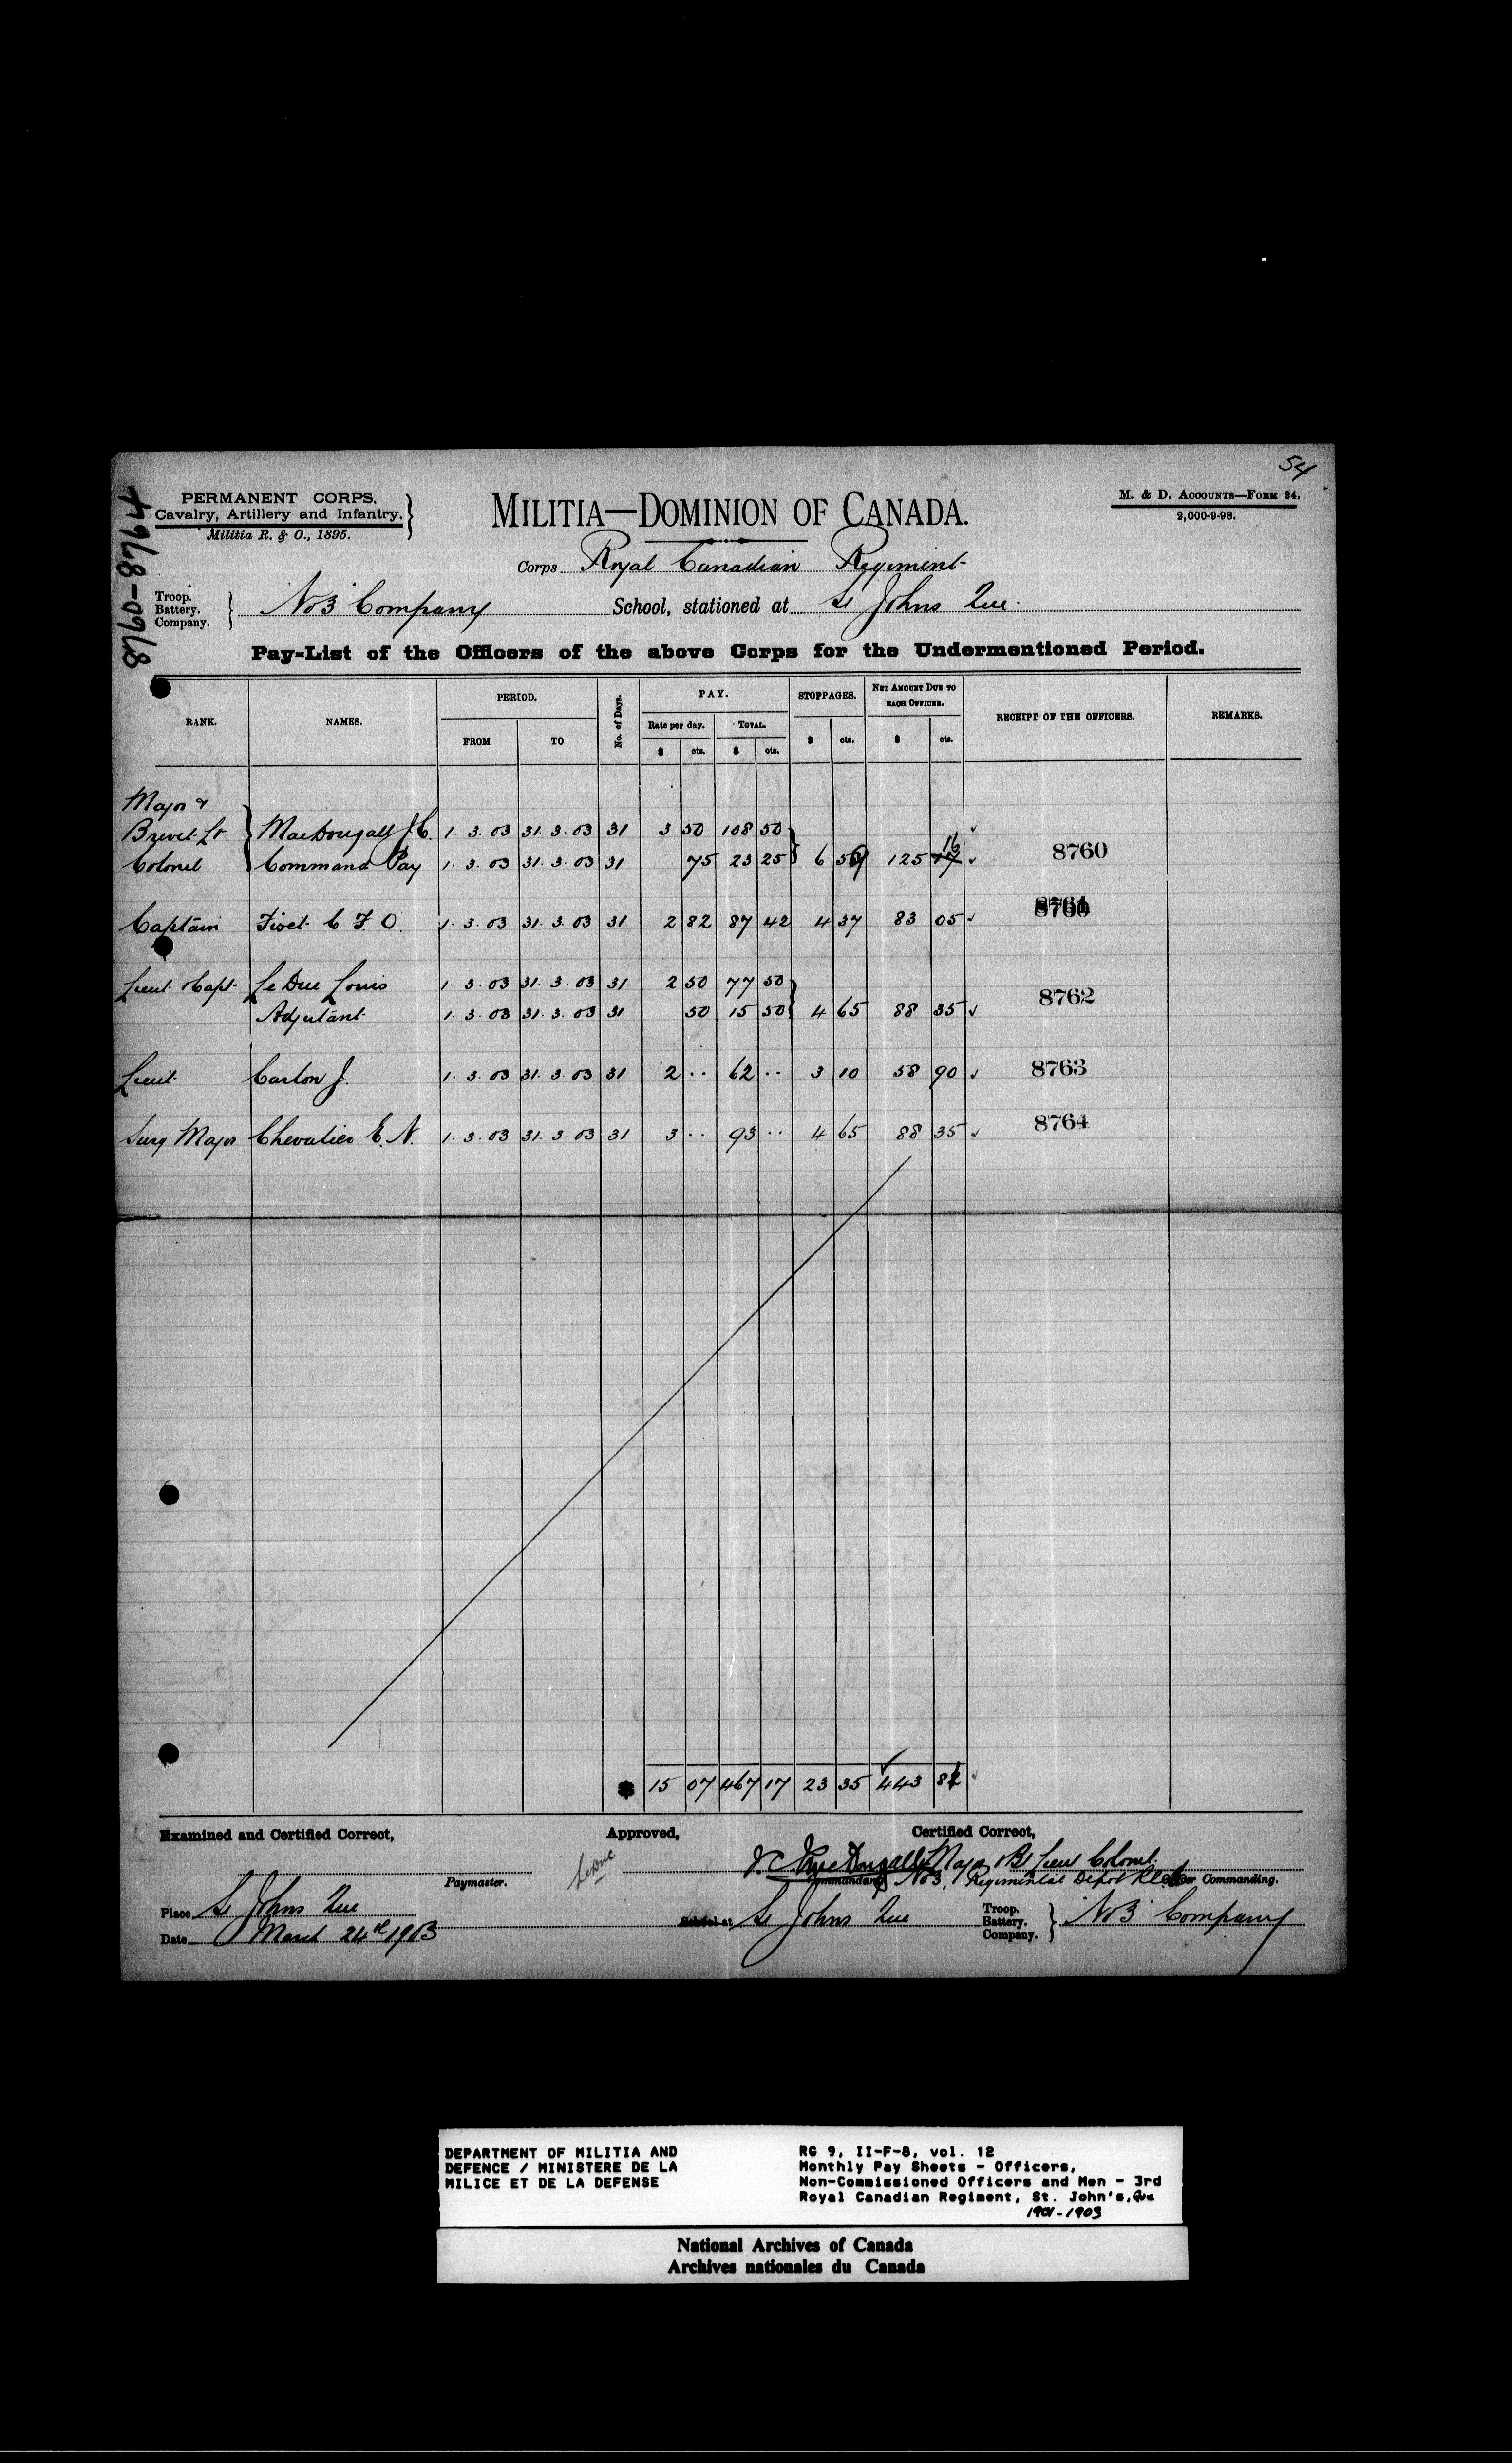 54
PERMANENT CORPS.
Cavalry, Artillery and Infantry.
Militia R. & O., 1895.
MILITIA—DOMINION OF CANADA.
M. & D. ACCOUNTS—FORM 24.
2,000-9-98.
8760-8764
Corps Royal Canadian Regiment
Troop. Battery. Company. No 3 Company School, stationed at St Johns Que.
Pay-List of the Officers of the above Corps for the Undermentioned Period.
RANK. NAMES. PERIOD. No. of Days. PAY. STOPPAGES. NET AMOUNT DUE TO EACH OFFICER. RECEIPT OF THE OFFICERS. REMARKS.
FROM TO Rate per day. TOTAL. $ cts. $ cts.
$ cts. $ cts.
Major &
Brevet Lt MacDougall J.C. 1. 3. 03 31. 3. 03 31 3 50 108 50
Colonel Command Pay 1. 3. 03 31. 3. 03 31 75 23 25 6 59 125 16 8760
Captain Fiset C. F. O. 1. 3. 03 31. 3. 03 31 2 82 87 42 4 37 83 05 8761
Lieut & Capt Le Duc Louis 1. 3. 03 31. 3. 03 31 2 50 77 50
Adjutant 1. 3. 03 31. 3. 03 31 50 15 50 4 65 88 35 8762
Lieut Carlon J. 1. 3. 03 31. 3. 03 31 2 .. 62 .. 3 10 58 90 8763
Surg Major Chevalier E. N. 1. 3. 03 31. 3. 03 31 3 .. 93 .. 4 65 88 35 8764
$ 15 07 467 17 23 35 443 82
Examined and Certified Correct, Approved, Certified Correct,
J.C. MacDougall Major & Bt Lieut Colonel
Leduc
Paymaster. Commandant No 3, Regimental Depot Commanding.
Place St Johns Que School at St Johns Que Troop. Battery. Company. No 3 Company
Date March 24th 1903
DEPARTMENT OF MILITIA AND
DEFENCE / MINISTERE DE LA
MILICE ET DE LA DEFENSE
RG 9, II-F-8, vol. 12
Monthly Pay Sheets - Officers,
Non-Commissioned Officers and Men - 3rd
Royal Canadian Regiment, St. John's, Que
1901-1903
National Archives of Canada
Archives nationales du Canada